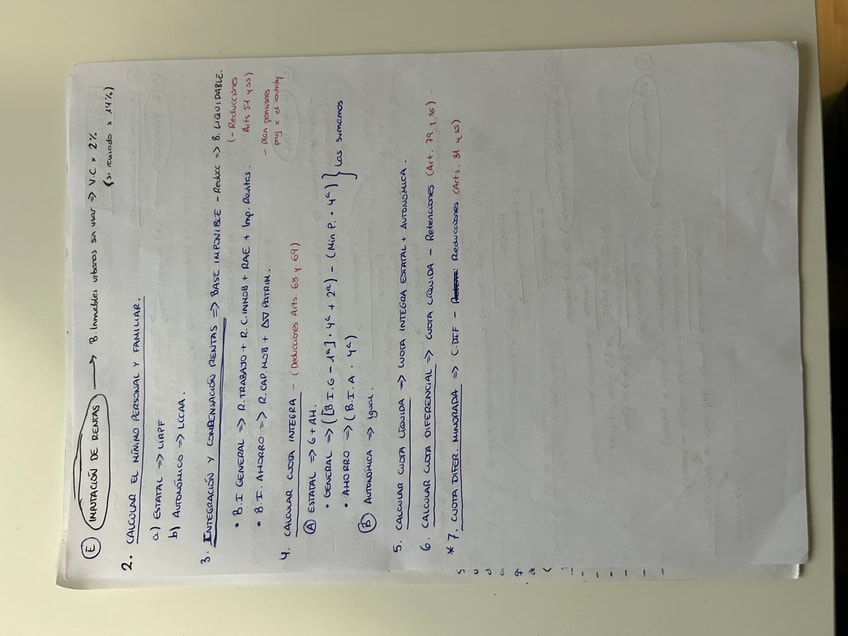 E IMPUTACIÓN DE RENTAS → B Inmuebles urbanos sin usar ⇒ V.C × 2%
(si revisado × 1'1%)
2. CALCULAR EL MÍNIMO PERSONAL Y FAMILIAR.
a) ESTATAL ⇒ LIRPF
b) AUTONÓMICO ⇒ LCCAA.
3. INTEGRACIÓN Y COMPENSACIÓN RENTAS ⇒ BASE IMPONIBLE - Reducc ⇒ B. LIQUIDABLE.
(- Reducciones
Arts 51 y ss)
- Plan pensiones
pag x el
• B.I GENERAL ⇒ R.TRABAJO + R.C.INMOB + RAE + Imp. Rentas.
• B.I. AHORRO ⇒ R.CAP.MOB + PATRIM.
4. CALCULAR CUOTA INTEGRA - (Deducciones Arts. 68 y 69)
A ESTATAL ⇒ G + AH.
• GENERAL ⇒ ([B.I.G - 1ª] · 4ª + 2ª) - (Min P. · 4ª)
• AHORRO ⇒ (B.I.A · 4ª)
} Las sumamos
B AUTONÓMICA ⇒ Igual.
5. CALCULAR CUOTA LÍQUIDA ⇒ CUOTA INTEGRA ESTATAL + AUTONÓMICA.
6. CALCULAR CUOTA DIFERENCIAL ⇒ CUOTA LÍQUIDA - Retenciones (Art. 79 y ss) -
* 7. CUOTA DIFER. MINORADA ⇒ C.DIF - Reducciones (Arts. 81 y ss)